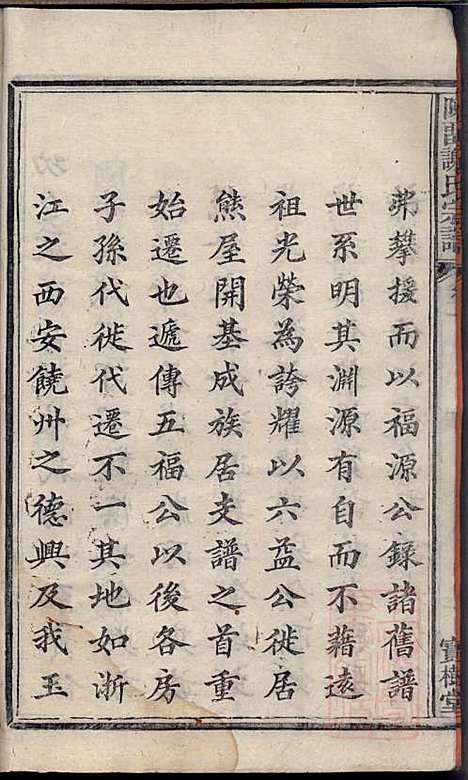 弗攀援而以福源公錄諸舊譜
世系明其淵源有自而不藉遠
祖光榮為誇耀以六益公徙居
熊屋開基成族居支譜之首重
始遷也遞傳五福公以後各房
子孫代徙代遷不一其地如浙
江之西安饒州之德興及我玉
謝氏宗譜
寶樹堂